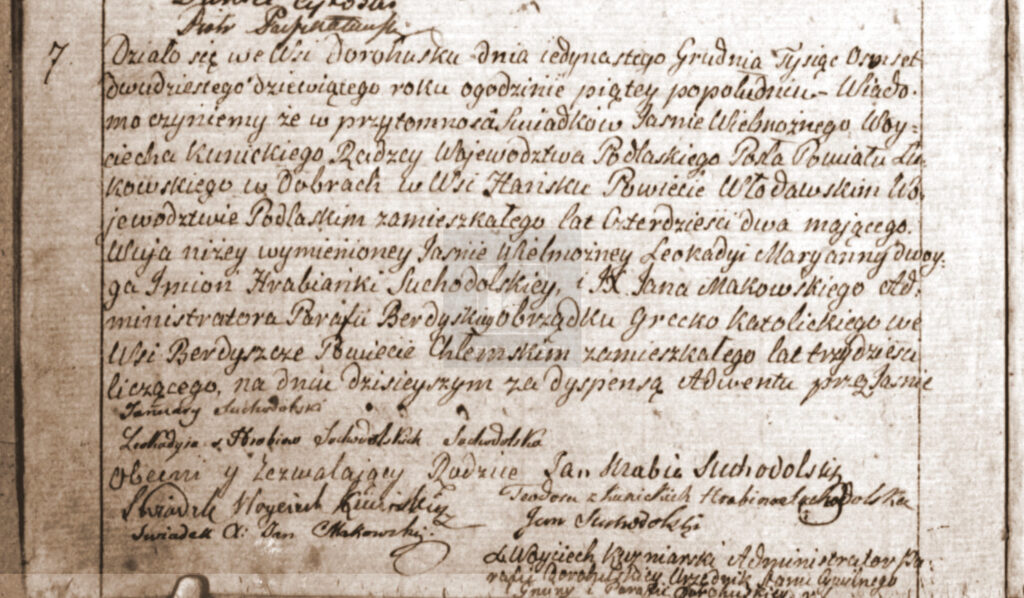 Piotr
7 Działo się we Wsi Dorohusku dnia iedynastego Grudnia Tysiąc Osmset
dwudziestego dziewiątego roku ogodzinie piątey popołudniu - Wiado-
mo czyniemy że w przytomności Swiadkow Jasnie Wielmożnego Woy-
ciecha Kunickiego Radzcy Wojewodztwa Podlaskiego Posła Powiatu Łu-
kowskiego w Dobrach w Wsi Hańsku Powiecie Włodawskim Wo-
jewodztwie Podlaskim zamieszkałego lat Czterdzieści dwa maiącego
Wuja niżey wymienioney Jasnie Wielmożney Leokadyi Maryanny dwoy-
ga Imion Hrabianki Suchodolskiey, i X Jana Makowskiego Ad-
ministratora Parafii Berdyskiey Obrządku Grecko Katolickiego we
Wsi Berdyszcze Powiecie Chełmskim zamieszkałego lat trzydzieści
liczącego, na dniu dzisieyszym za dyspensą Adwentu przez Jasnie
January Suchodolski
Leokadyia z Hrabiow Suchodolskich Suchodolska
Obecni y Zezwalaiący Rodzice Jan Hrabia Suchodolski
Swiadek Woyciech Kunicki
Teodora z Kunickich Hrabina Suchodolska
Swiadek X: Jan Makowski
Jan Suchodolski
X Woyciech Kuzniarski Administrator Pa-
rafii Dorohuskiey Urzędnik Stanu Cywilnego
Gminy i Parafii Dorohuskiey